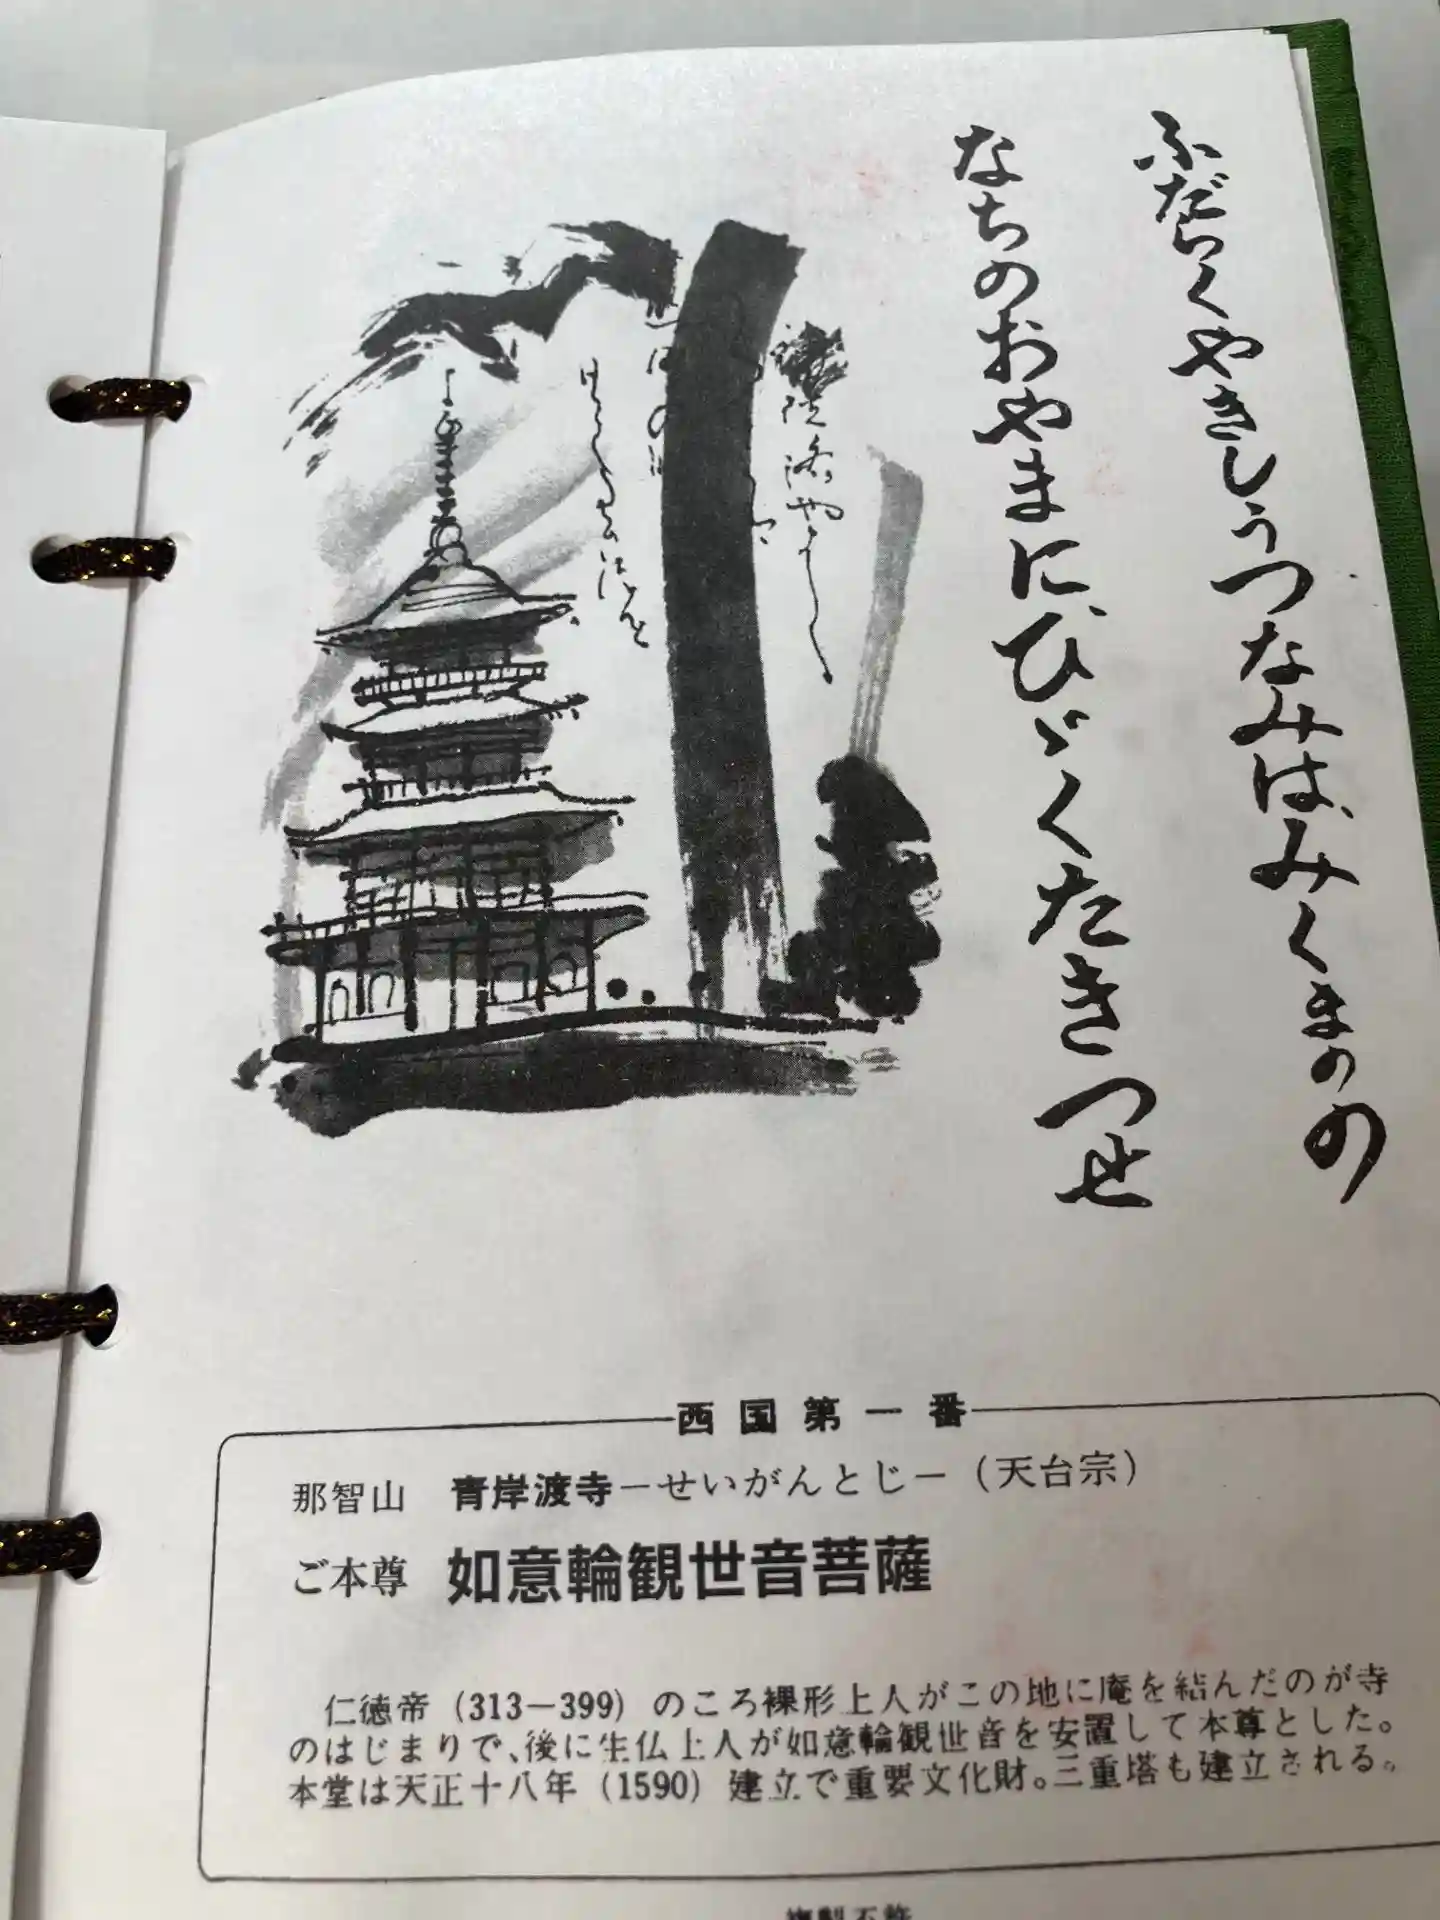 ふだらくやきしうつなみはみくまのの
なちのおやまにひゞくたきつせ
西国第一番
那智山 青岸渡寺－せいがんとじ－（天台宗）
ご本尊 如意輪観世音菩薩
仁徳帝（313－399）のころ裸形上人がこの地に庵を結んだのが寺
のはじまりで、後に生仏上人が如意輪観世音を安置して本尊とした。
本堂は天正十八年（1590）建立で重要文化財。三重塔も建立される。